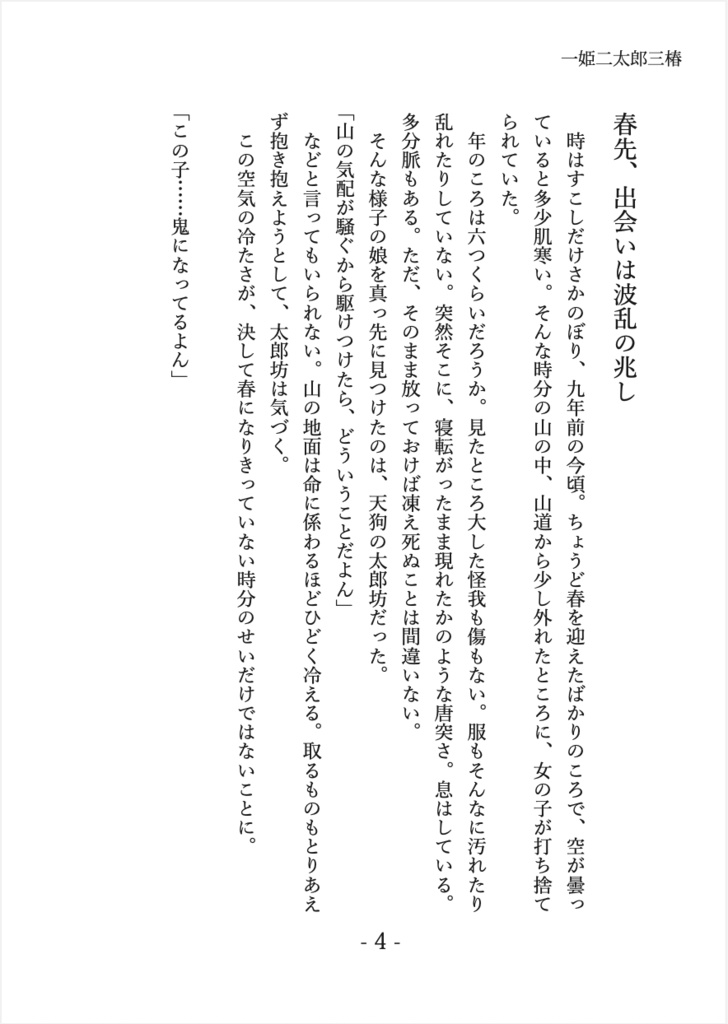 一姫二太郎三椿
春先、出会いは波乱の兆し
時はすこしだけさかのぼり、九年前の今頃。ちょうど春を迎えたばかりのころで、空が曇っ
ていると多少肌寒い。そんな時分の山の中、山道から少し外れたところに、女の子が打ち捨て
られていた。
年のころは六つくらいだろうか。見たところ大した怪我も傷もない。服もそんなに汚れたり
乱れたりしていない。突然そこに、寝転がったまま現れたかのような唐突さ。息はしている。
多分脈もある。ただ、そのまま放っておけば凍え死ぬことは間違いない。
そんな様子の娘を真っ先に見つけたのは、天狗の太郎坊だった。
「山の気配が騒ぐから駆けつけたら、どういうことだよん」
などと言ってもいられない。山の地面は命に係わるほどひどく冷える。取るものもとりあえ
ず抱き抱えようとして、太郎坊は気づく。
この空気の冷たさが、決して春になりきっていない時分のせいだけではないことに。
「この子……鬼になってるよん」
- 4 -